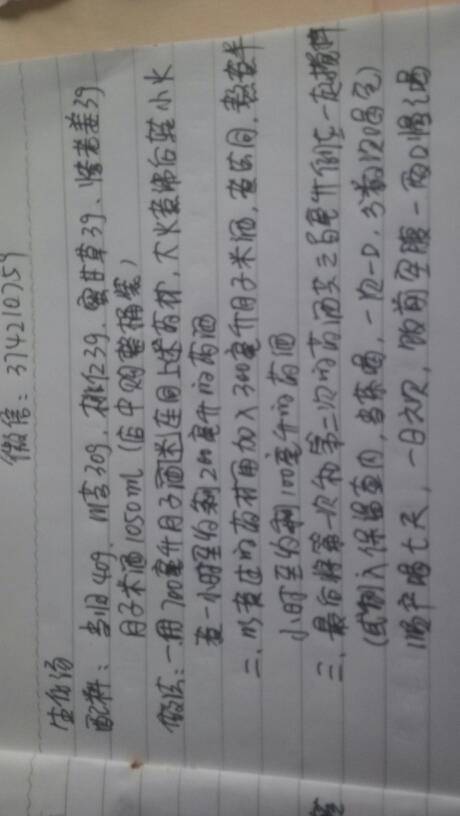 微信：374210759
生化汤
配料：当归40g、川芎30g、桃仁39、蜜甘草39、烤老姜39
月子米酒1050ml（店中购整桶装）
做法：一、用700毫升月子酒米酒上述药材，大火煮沸后转小火
煮一小时至约剩200毫升的药酒
二、所煮过的药材再加入350毫升月子米酒，煮法同，熬煮半
小时至约剩100毫升的药酒
三、最后将第一次和第二次的药酒共三百毫升倒在一起搅拌
（或倒入保温壶内，当茶喝，一次一口，分数次喝完）
顺产喝七天，一日六次，饭前空腹一两口慢慢喝